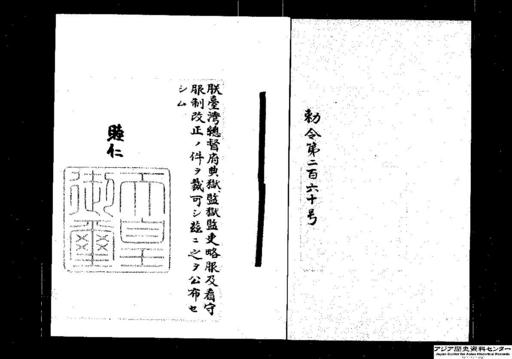 勅令第二百六十号
朕臺灣總督府典獄監獄監吏略服及看守
服制改正ノ件ヲ裁可シ茲ニ之ヲ公布セ
シム
睦仁
天皇
御璽
アジア歴史資料センター
Japan Center for Asian Historical Records